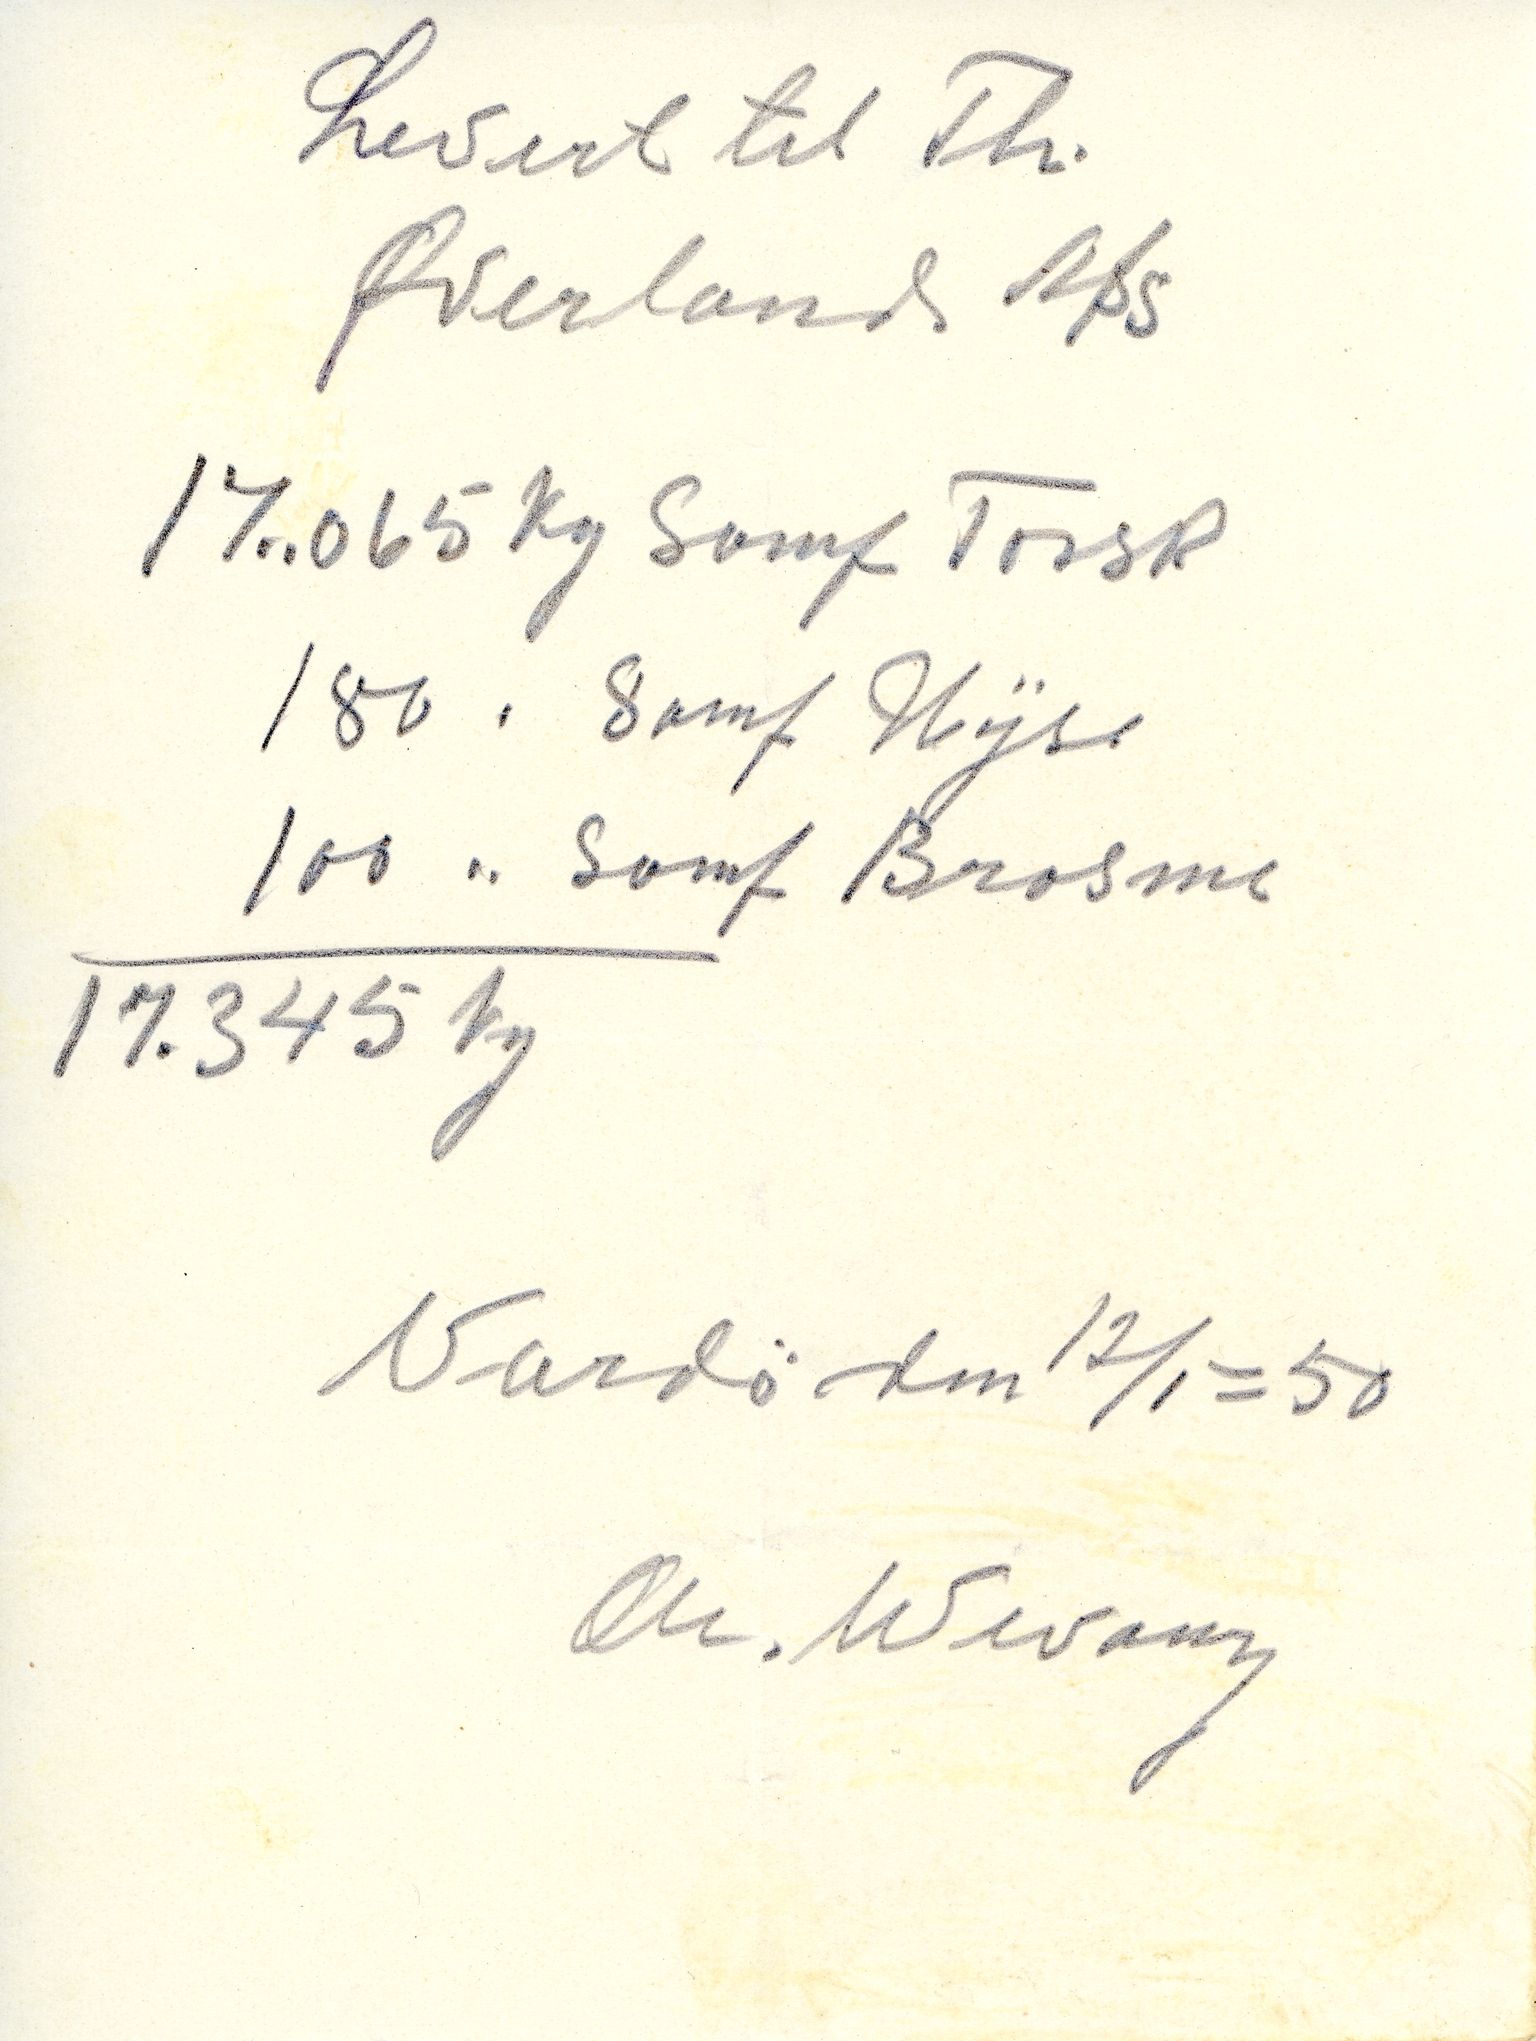 Levert til Th.
Øverland A/S
17..065 kg Somf Torsk
180 " Somf Hÿse
100 " Somf Brosme
17.345 kg
Vardö den 12/1=50